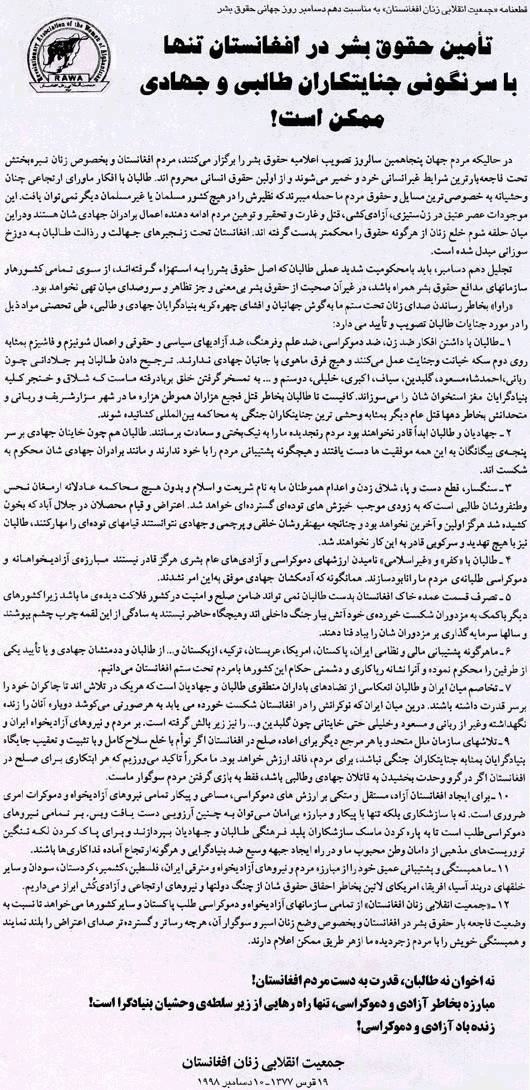 قطعنامه «جمعیت انقلابی زنان افغانستان» به مناسبت دهم دسامبر روز جهانی حقوق بشر
Revolutionary Association of the Women of Afghanistan
RAWA
تأمین حقوق بشر در افغانستان تنها
با سرنگونی جنایتکاران طالبی و جهادی
ممکن است!
در حالیکه مردم جهان پنجاهمین سالروز تصویب اعلامیه حقوق بشر را برگزار می‌کنند، مردم افغانستان و بخصوص زنان تیره‌بختش
تحت فاجعه‌بارترین شرایط غیرانسانی خرد و خمیر می‌شوند و از اولین حقوق انسانی محروم اند. طالبان با افکار ماورای ارتجاعی چنان
وحشیانه به خصوصی‌ترین مسایل و حقوق مردم ما حمله میبرند که نظیرش را در هیچ کشور مسلمان یا غیر مسلمان دیگر نمی‌توان یافت. این
موجودات عصر عتیق در زن‌ستیزی، آزادی‌کشی، قتل و غارت و تحقیر و توهین مردم ادامه دهنده اعمال برادران جهادی شان هستند و در این
میان حلقه شوم خلع زنان از هرگونه حقوق را محکمتر بدست گرفته اند. افغانستان تحت زنجیرهای جهالت و رذالت طالبان به دوزخ
سوزانی مبدل شده است.
تجلیل دهم دسامبر، باید با محکومیت شدید عملی طالبان که اصل حقوق بشر را به استهزاء گرفته‌اند، از سوی تمامی کشورها و
سازمانهای مدافع حقوق بشر همراه باشد، در غیر آن صحبت از حقوق بشر بی‌معنی و جز تظاهر و سروصدای میان تهی نخواهد بود.
«راوا» بخاطر رساندن صدای زنان تحت ستم ما به گوش جهانیان و افشای چهره کریه بنیادگرایان جهادی و طالبی، طی تحصنی مواد ذیل
را در مورد جنایات طالبان تصویب و تأیید می دارد:
۱ـ طالبان با داشتن افکار ضد زن، ضد دموکراسی، ضد علم و فرهنگ، ضد آزادیهای سیاسی و حقوقی و اعمال شئونیزم و فاشیزم بمثابه
روی دوم سکه خیانت و جنایت عمل می‌کنند و هیچ فرق ماهوی با جانیان جهادی ندارند. ترجیح دادن طالبان بر جلادانی چون
ربانی، احمدشاه مسعود، گلبدین، سیاف، اکبری، خلیلی، دوستم و ... به تمسخر گرفتن خلق بر باد رفته ماست که شلاق و خنجر کلیه
بنیادگرایان مغز استخوان شان را می‌سوزاند. کافیست تا طالبان بخاطر قتل فجیع هزاران هموطن هزاره ما در شهر مزارشریف و ربانی و
متحدانش بخاطر دهها قتل عام دیگر بمثابه وحشی ترین جنایتکاران جنگی به محاکمه بین‌المللی کشانیده شوند.
۲ ـ جهادیان و طالبان ابداً قادر نخواهند بود مردم رنجدیده ما را به نیک‌بختی و سعادت برسانند. طالبان هم چون خاینان جهادی بر سر
پنجه‌ی بیگانگان به این همه موفقیت ها دست یافتند و هیچگونه پشتیبانی مردم را با خود ندارند و مانند برادران جهادی شان محکوم به
شکست اند.
۳ ـ سنگسار، قطع دست و پا، شلاق زدن و اعدام هموطنان ما به نام شریعت و اسلام و بدون هیچ محاکمه عادلانه ارمغان نحس
وطنفروشان طالبی است که به زودی موجب خیزش های توده‌ای گسترده‌ای خواهد شد. اعتراض و قیام محصلان در جلال آباد که بخون
کشیده شد هرگز اولین و آخرین نخواهد بود و چنانچه میهنفروشان خلقی و پرچمی و جهادی نتوانستند قیامهای توده‌ای را مهار کنند، طالبان
نیز با هیچ تهدید و سرکوبی قادر به این کار نخواهند شد.
۴ ـ طالبان با «کفر» و «غیراسلامی» نامیدن ارزشهای دموکراسی و آزادی‌های عام بشری هرگز قادر نیستند مبارزه‌ی آزادیخواهانه و
دموکراسی طلبانه‌ی مردم ما را نابود سازند. همانگونه که آدمکشان جهادی موفق به این امر نشدند.
۵ ـ تصرف قسمت عمده خاک افغانستان بدست طالبان نمی تواند ضامن صلح و امنیت در کشور فلاکت دیده‌ی ما باشد زیرا کشورهای
دیگر با کمک به مزدوران شکست خورده‌ی خود آتش بیار جنگ داخلی اند و هیچگاه حاضر نیستند به سادگی از این لقمه چرب چشم بپوشند
و سالها سرمایه گذاری بر مزدوران شان را بباد فنا دهند.
۶ ـ ما هرگونه پشتیبانی مالی و نظامی ایران، پاکستان، امریکا، عربستان، ترکیه، ازبکستان و... از طالبان و ددمنشان جهادی و یا تأیید یکی
از طرفین را محکوم نموده و آنرا نشانه ریاکاری و دشمنی حکام این کشورها با مردم تحت ستم افغانستان می‌دانیم.
۷ ـ تخاصم میان ایران و طالبان انعکاسی از تضادهای باداران منطقوی طالبان و جهادیان است که هریک در تلاش اند تا چاکران خود را
بر سر قدرت داشته باشند. درین میان ایران که نوکرانش را در افغانستان شکست خورده می یابد به هر صورتی می‌کوشد دوباره آنان را زنده
نگهداشته و غیر از ربانی و مسعود و خلیلی حتی خاینانی چون گلبدین و... را نیز زیر بالش گرفته است. بر مردم و نیروهای آزادیخواه ایران و
۹ ـ تلاشهای سازمان ملل متحد و یا هر مرجع دیگر برای اعاده صلح در افغانستان اگر توأم با خلع سلاح کامل و با تثبیت و تعقیب جایگاه
بنیادگرایان بمثابه جنایتکاران جنگی نباشد، برای مردم، فاقد ارزش خواهد بود. ما مکرراً تاکید می‌ورزیم که هر ابتکاری برای صلح در
افغانستان اگر در گرو وحدت بخشیدن به قاتلان جهادی و طالبی باشد، فقط به بازی گرفتن مردم سوگوار ماست.
۱۰ ـ برای ایجاد افغانستان آزاد، مستقل و متکی بر ارزش های دموکراسی، مساعی و پیکار تمامی نیروهای آزادیخواه و دموکرات امری
ضروری است. نه با سازشکاری بلکه تنها با پیکار و مبارزه بی‌امان می‌توان به چنین آرزویی دست یافت و بس. بر تمامی نیروهای
دموکراسی طلب است تا به پاره کردن ماسک سازشکاران پلید فرهنگی طالبان و جهادیان بپردازند و برای پاک کردن لکه ننگین
تروریست‌های مذهبی از دامان وطن محبوب ما و در راه ایجاد جبهه وسیع ضد بنیادگرایی و هرگونه ارتجاع آماده فداکاری‌ها باشند.
۱۱ ـ ما همبستگی و پشتیبانی عمیق خود را از مبارزه مردم و نیروهای آزادیخواه و مترقی ایران، فلسطین، کشمیر، کردستان، سودان و سایر
خلقهای دربند آسیا، افریقا، امریکای لاتین بخاطر احقاق حقوق شان از چنگ دولتها و نیروهای ارتجاعی و آزادی‌کُش ابراز می‌داریم.
۱۲ ـ «جمعیت انقلابی زنان افغانستان» از تمامی سازمانهای آزادیخواه و دموکراسی طلب پاکستان و سایر کشورها می‌خواهد تا نسبت به
وضعیت فاجعه بار حقوق بشر در افغانستان و بخصوص وضع زنان اسیر و سوگوار آن، هرچه رساتر و گسترده تر صدای اعتراض را بلند نمایند
و همبستگی خویش را با مردم زجردیده ما از هر طریق ممکن اعلام دارند.
نه اخوان نه طالبان، قدرت به دست مردم افغانستان!
مبارزه بخاطر آزادی و دموکراسی، تنها راه رهایی از زیر سلطه‌ی وحشیان بنیادگرا است!
زنده باد آزادی و دموکراسی!
جمعیت انقلابی زنان افغانستان
۱۹ قوس ۱۳۷۷ ـ ۱۰ دسامبر ۱۹۹۸